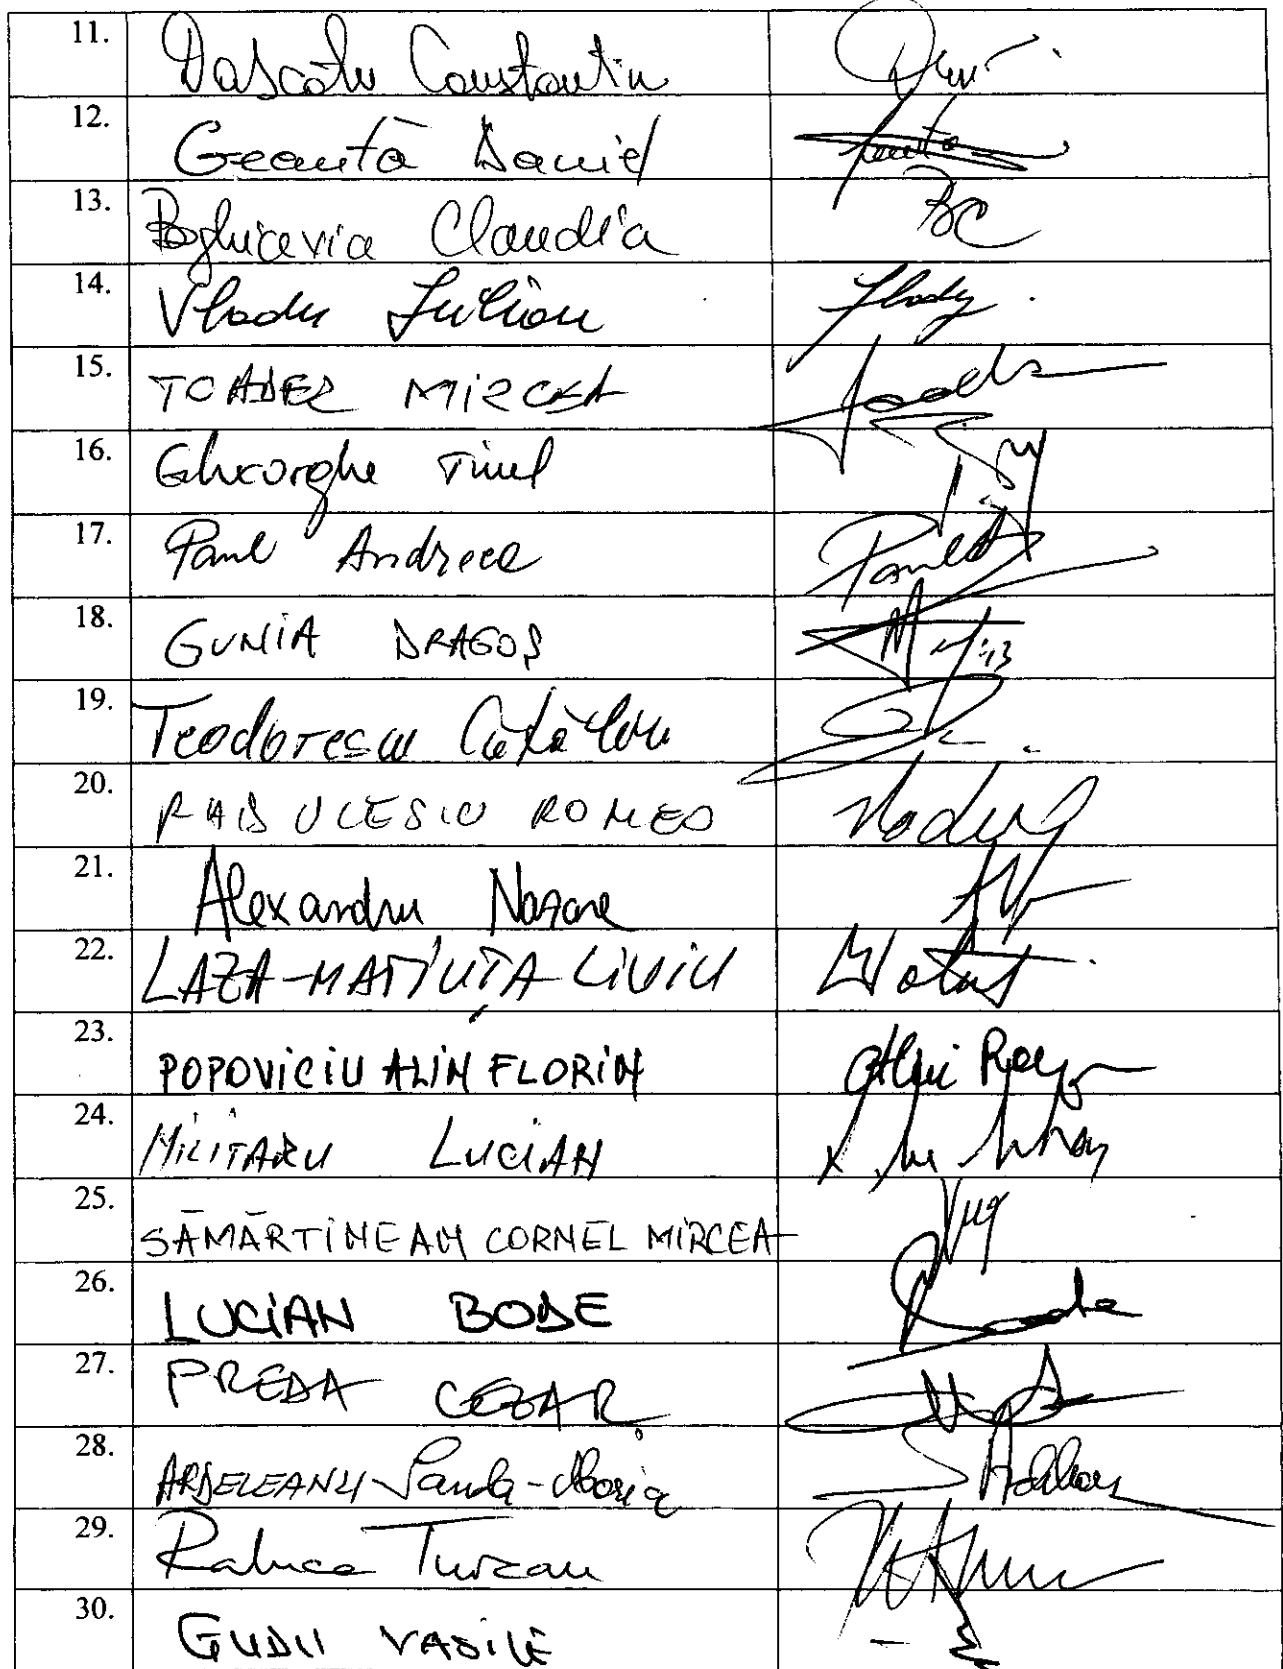 11. Dascălu Constantin
12. Geantă Daniel
13. Boghicevici Claudia
14. Vladu Iulian
15. TOADER MIRCEA
16. Gheorghe Tinel
17. Paul Andreea
18. GUNIA DRAGOȘ
19. Teodorescu Cătălin
20. RADULESCU ROMEO
21. Alexandru Nazare
22. LAZA-MATIUȚA LIVIU
23. POPOVICIU ALIN FLORIN
24. MILITARU LUCIAN
25. SĂMĂRTINEAN CORNEL MIRCEA
26. LUCIAN BODE
27. PREDA CEZAR
28. ARDELEANU Sanda-Maria
29. Raluca Turcan
30. GUDU VASILE